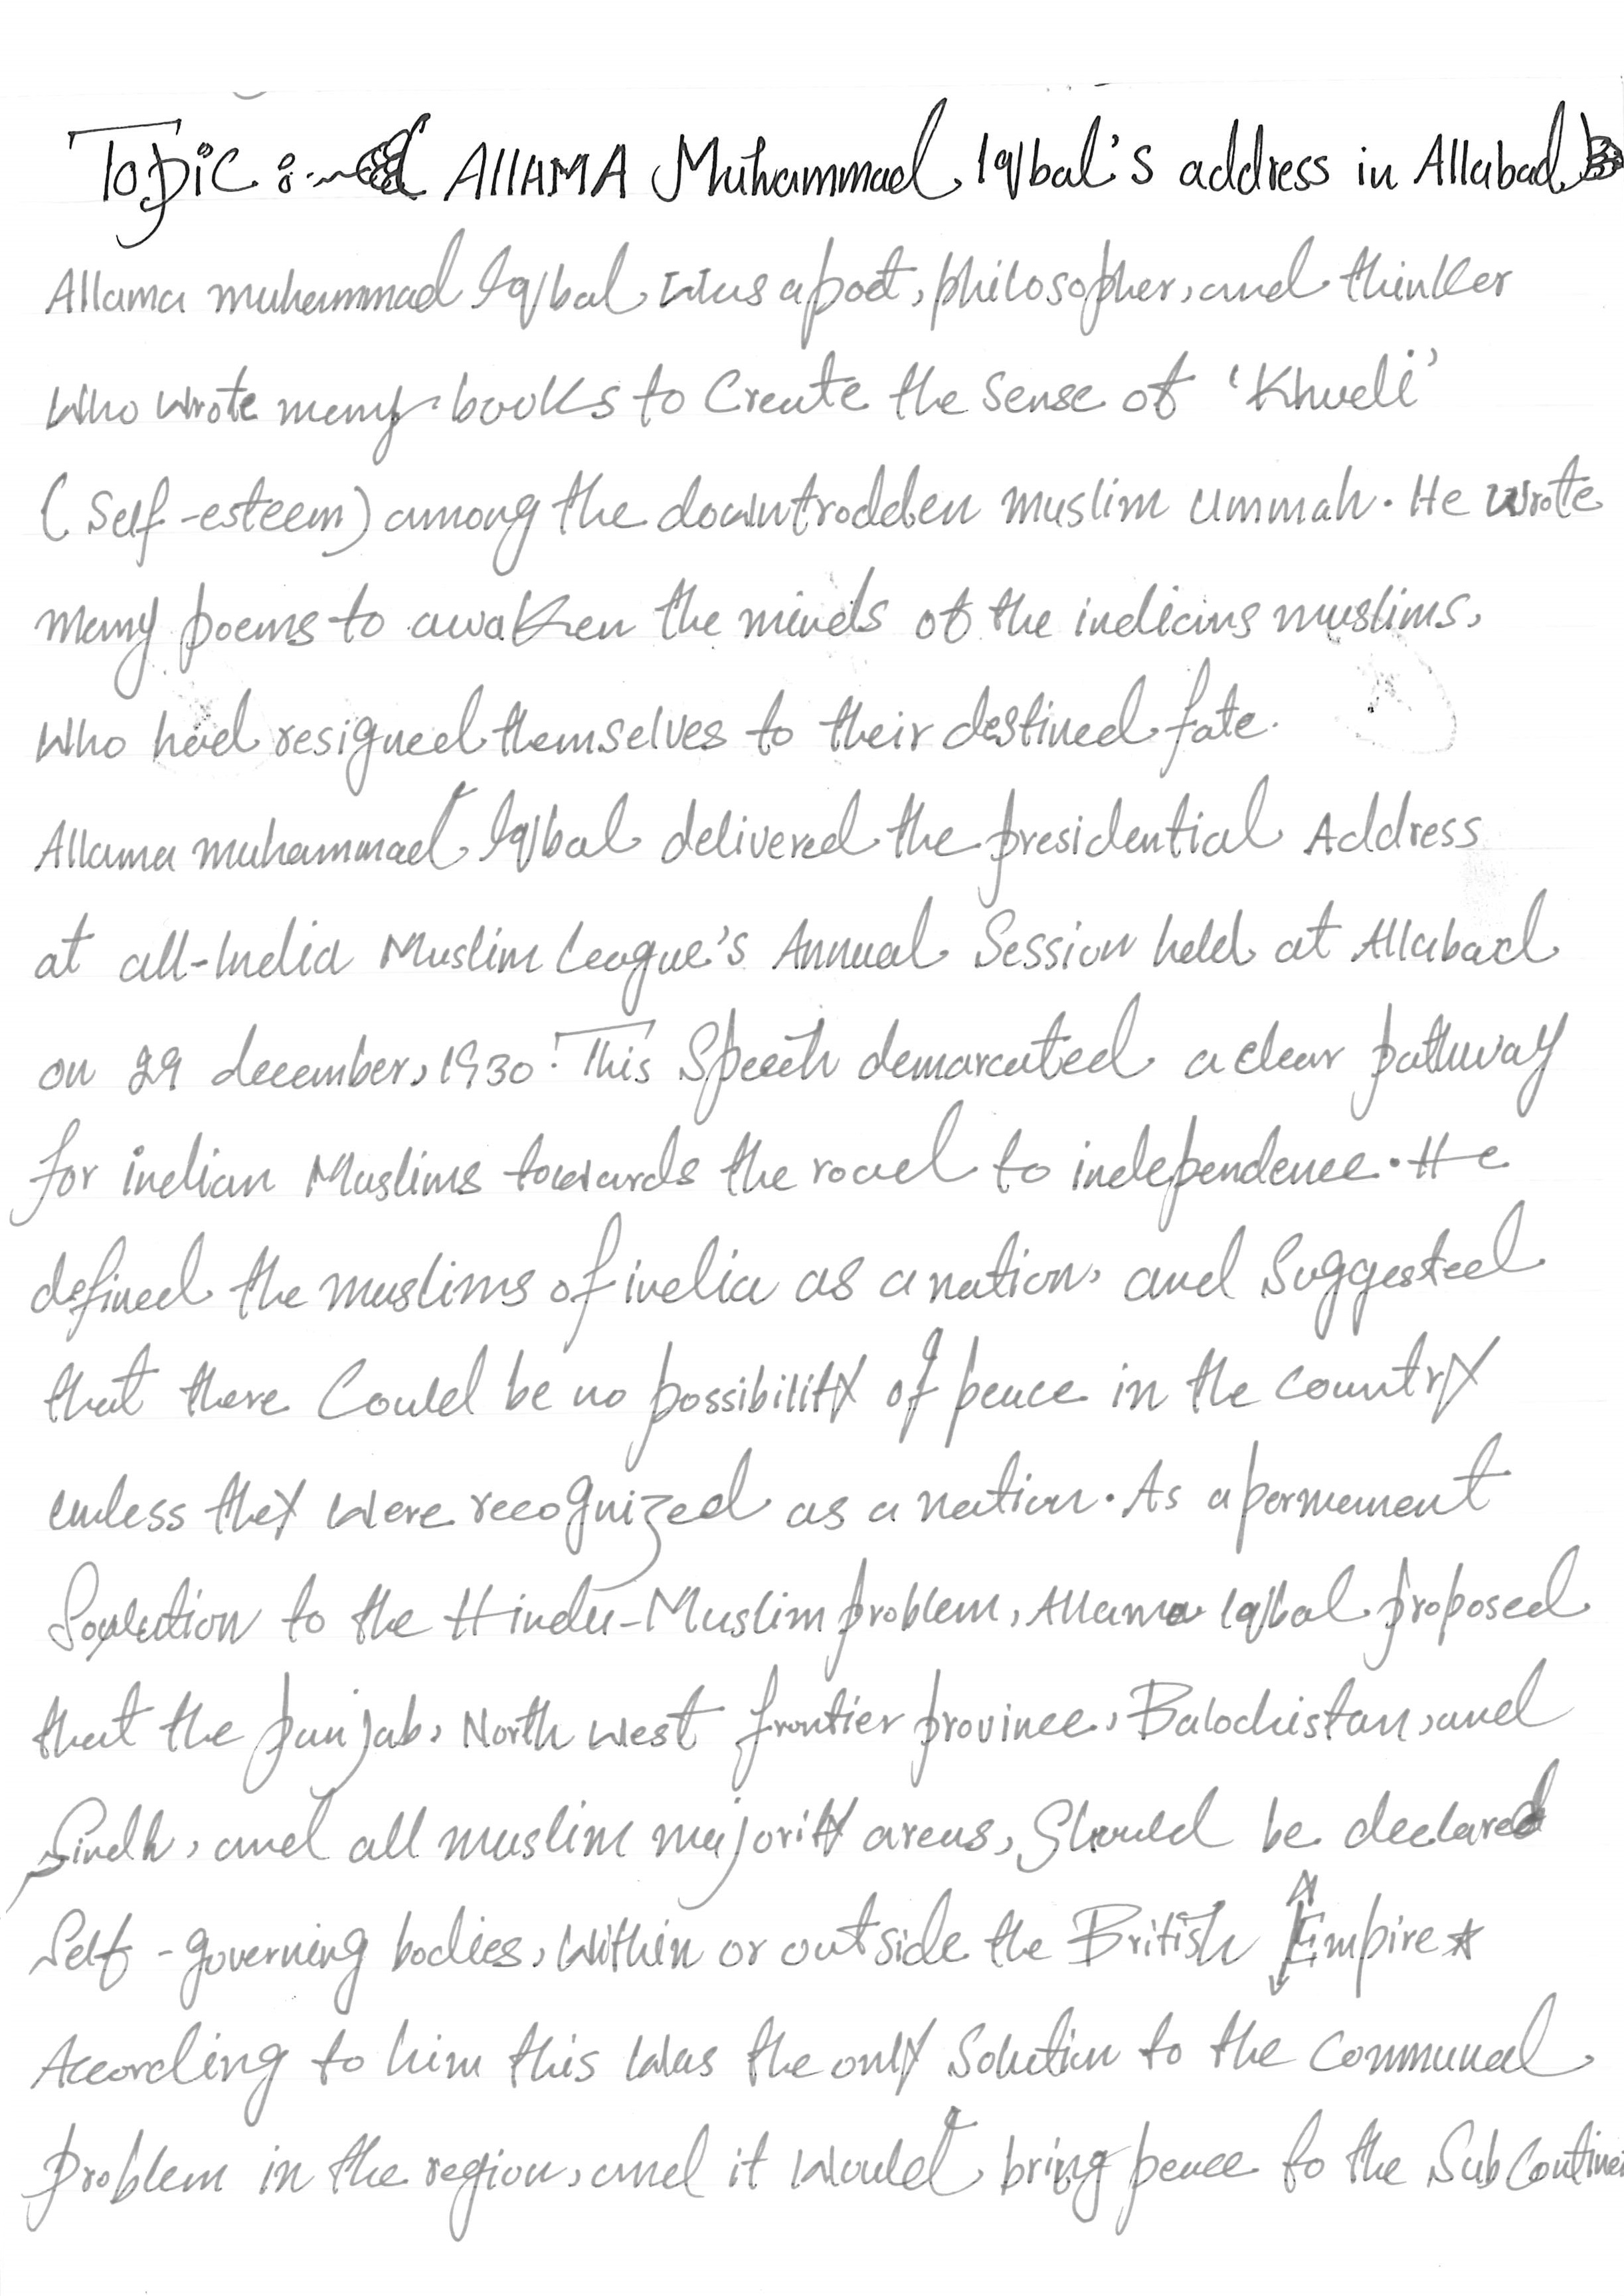 Topic :- ALLAMA Muhammad Iqbal's address in Allabad
Allama muhammad Iqbal was a poet, philosopher, and thinker
who wrote many books to Create the Sense of 'Khudi'
(Self-esteem) among the downtrodden muslim ummah. He wrote
many poems to awaken the minds of the indians muslims,
who had resigned themselves to their destined fate.
Allama muhammad Iqbal delivered the presidential Address
at all-India Muslim League's Annual Session held at Allabad
on 29 december, 1930. This Speech demarcated a clear pathway
for indian Muslims towards the road to independence. He
defined the muslims of india as a nation, and Suggested
that there Could be no possibility of peace in the country
unless they were recognized as a nation. As a permanent
Soulution to the Hindu-Muslim problem, Allama Iqbal proposed
that the punjab, North west frontier province, Balochistan, and
Sindh, and all muslim majority areas, Should be declared
Self-governing bodies, within or outside the British Empire
According to him this was the only Solution to the Communal
problem in the region, and it would bring peace to the SubContine